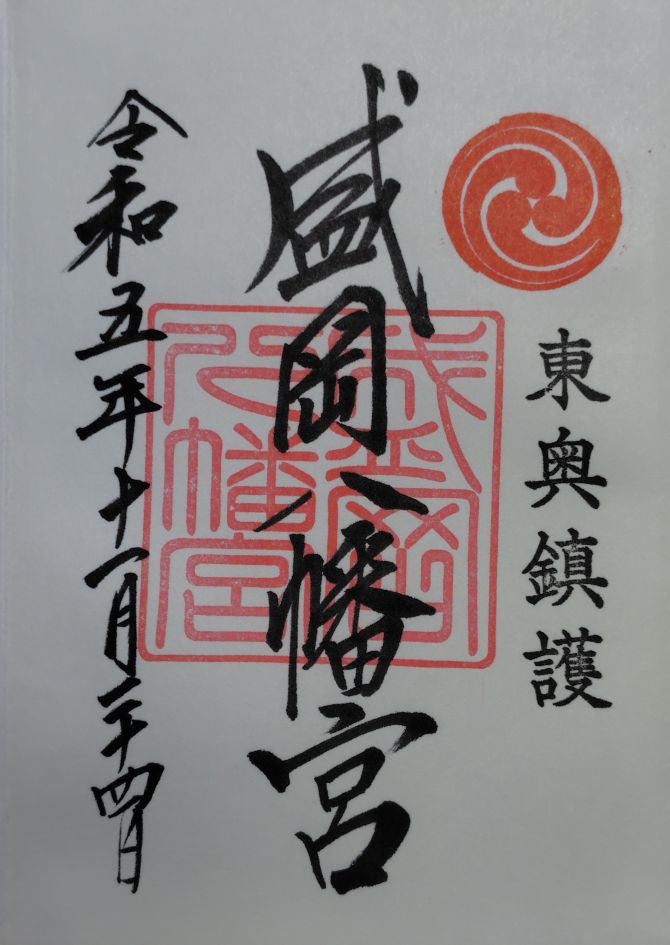 東奥鎮護
盛岡八幡宮
盛岡八幡宮
令和五年十一月二十四日